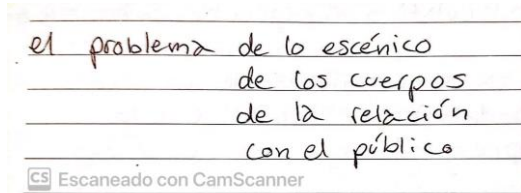 el problema de lo escénico
de los cuerpos
de la relación
con el público
CS Escaneado con CamScanner